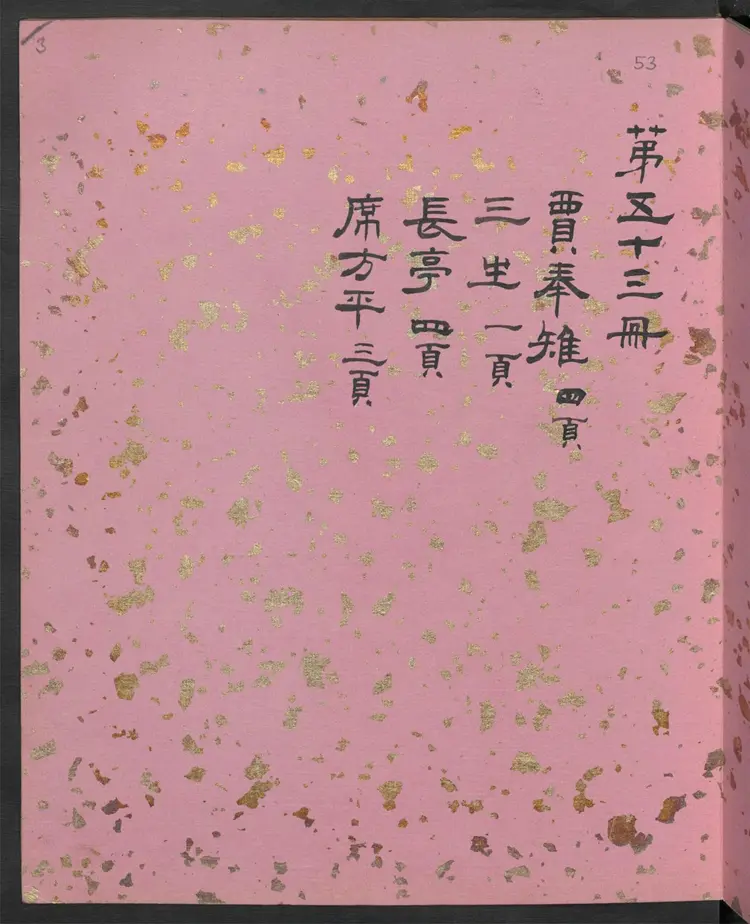 第五十三冊
賈奉雉 四頁
三生 一頁
長亭 四頁
席方平 三頁
53
3